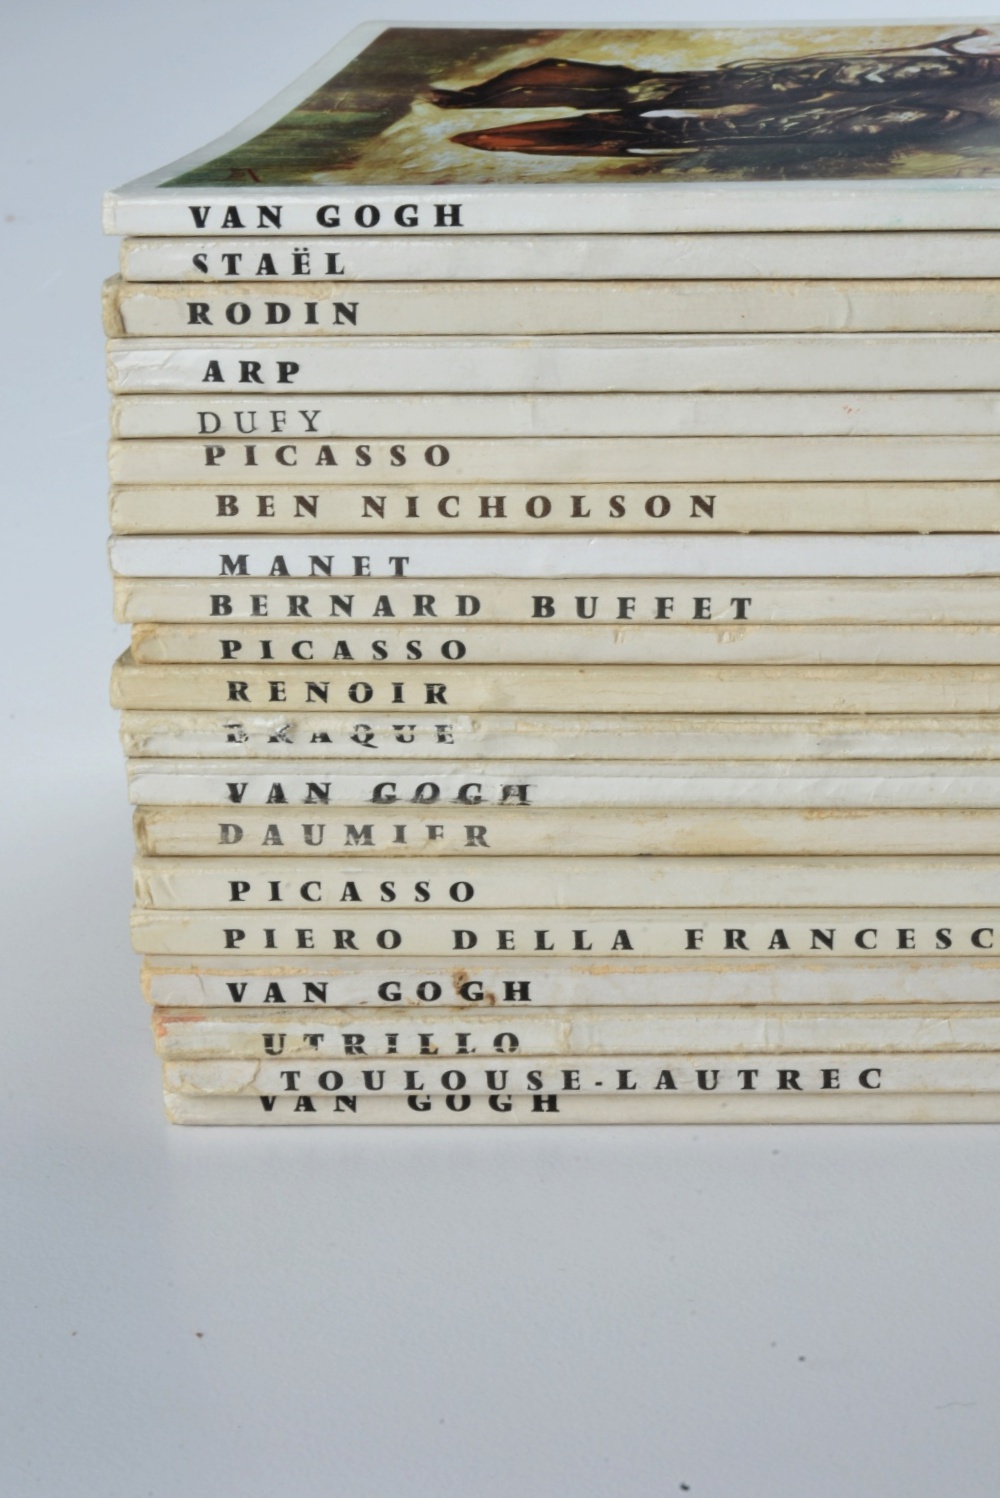 VAN GOGH
STAËL
RODIN
ARP
DUFY
PICASSO
BEN NICHOLSON
MANET
BERNARD BUFFET
PICASSO
RENOIR
BRAQUE
VAN GOGH
DAUMIER
PICASSO
PIERO DELLA FRANCESC
VAN GOGH
UTRILLO
TOULOUSE-LAUTREC
VAN GOGH